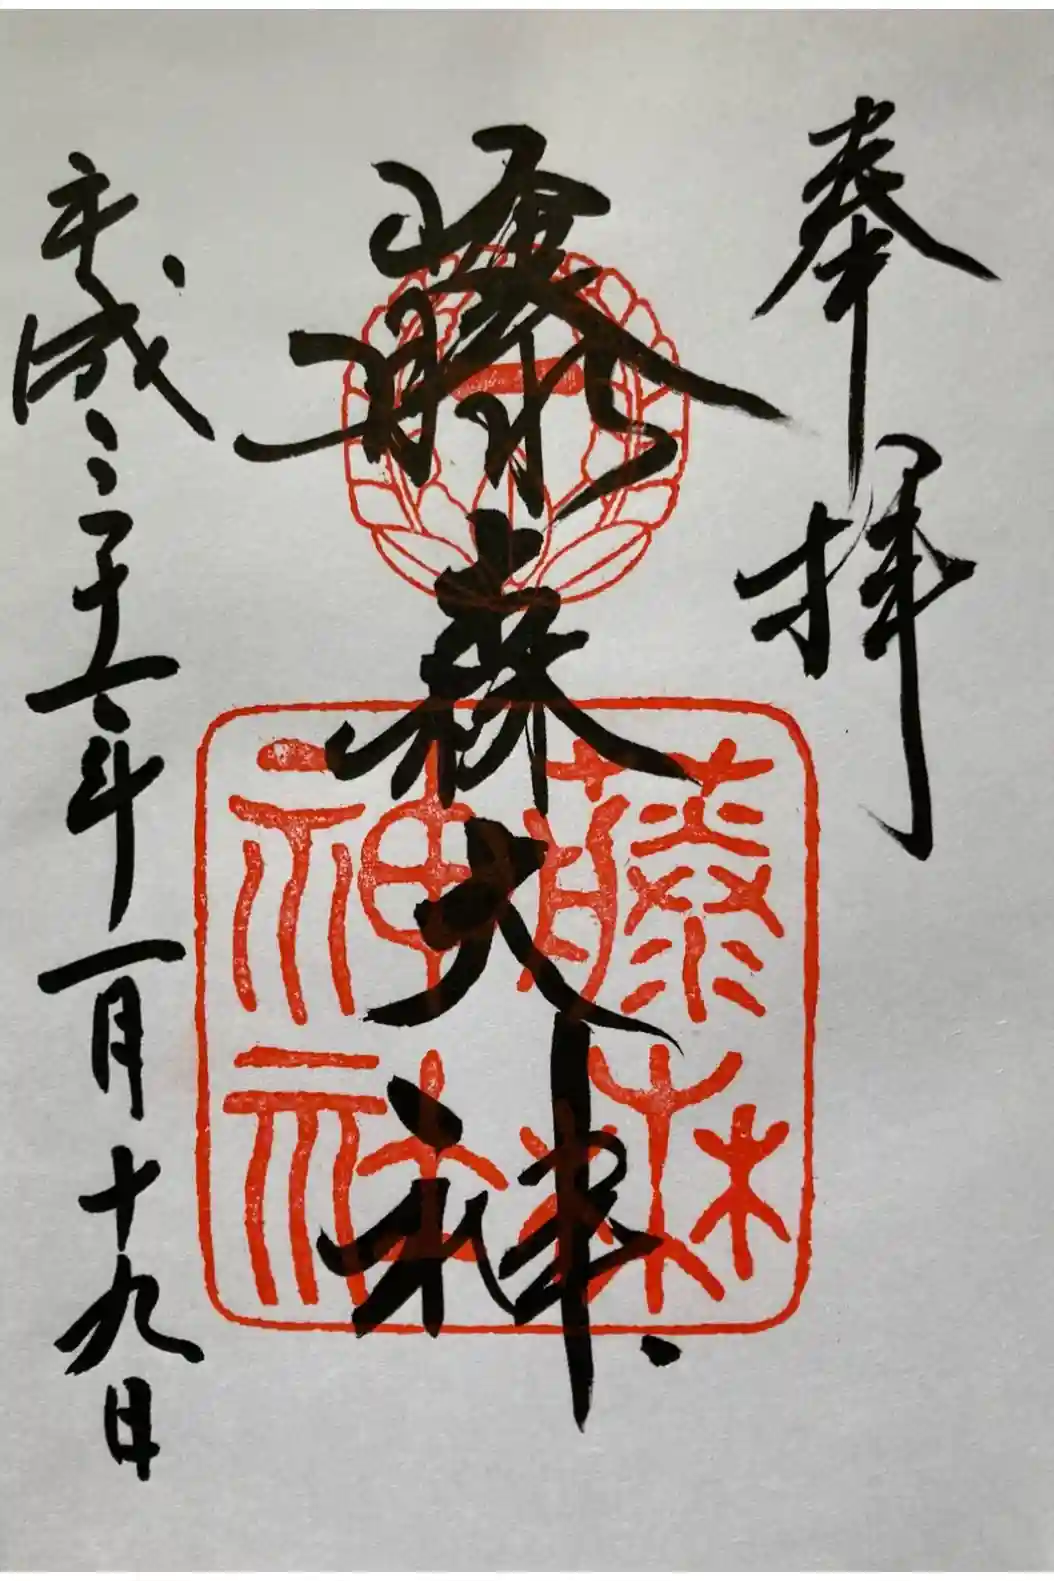 奉拝
藤森大神
藤森神社
平成三十一年一月十九日